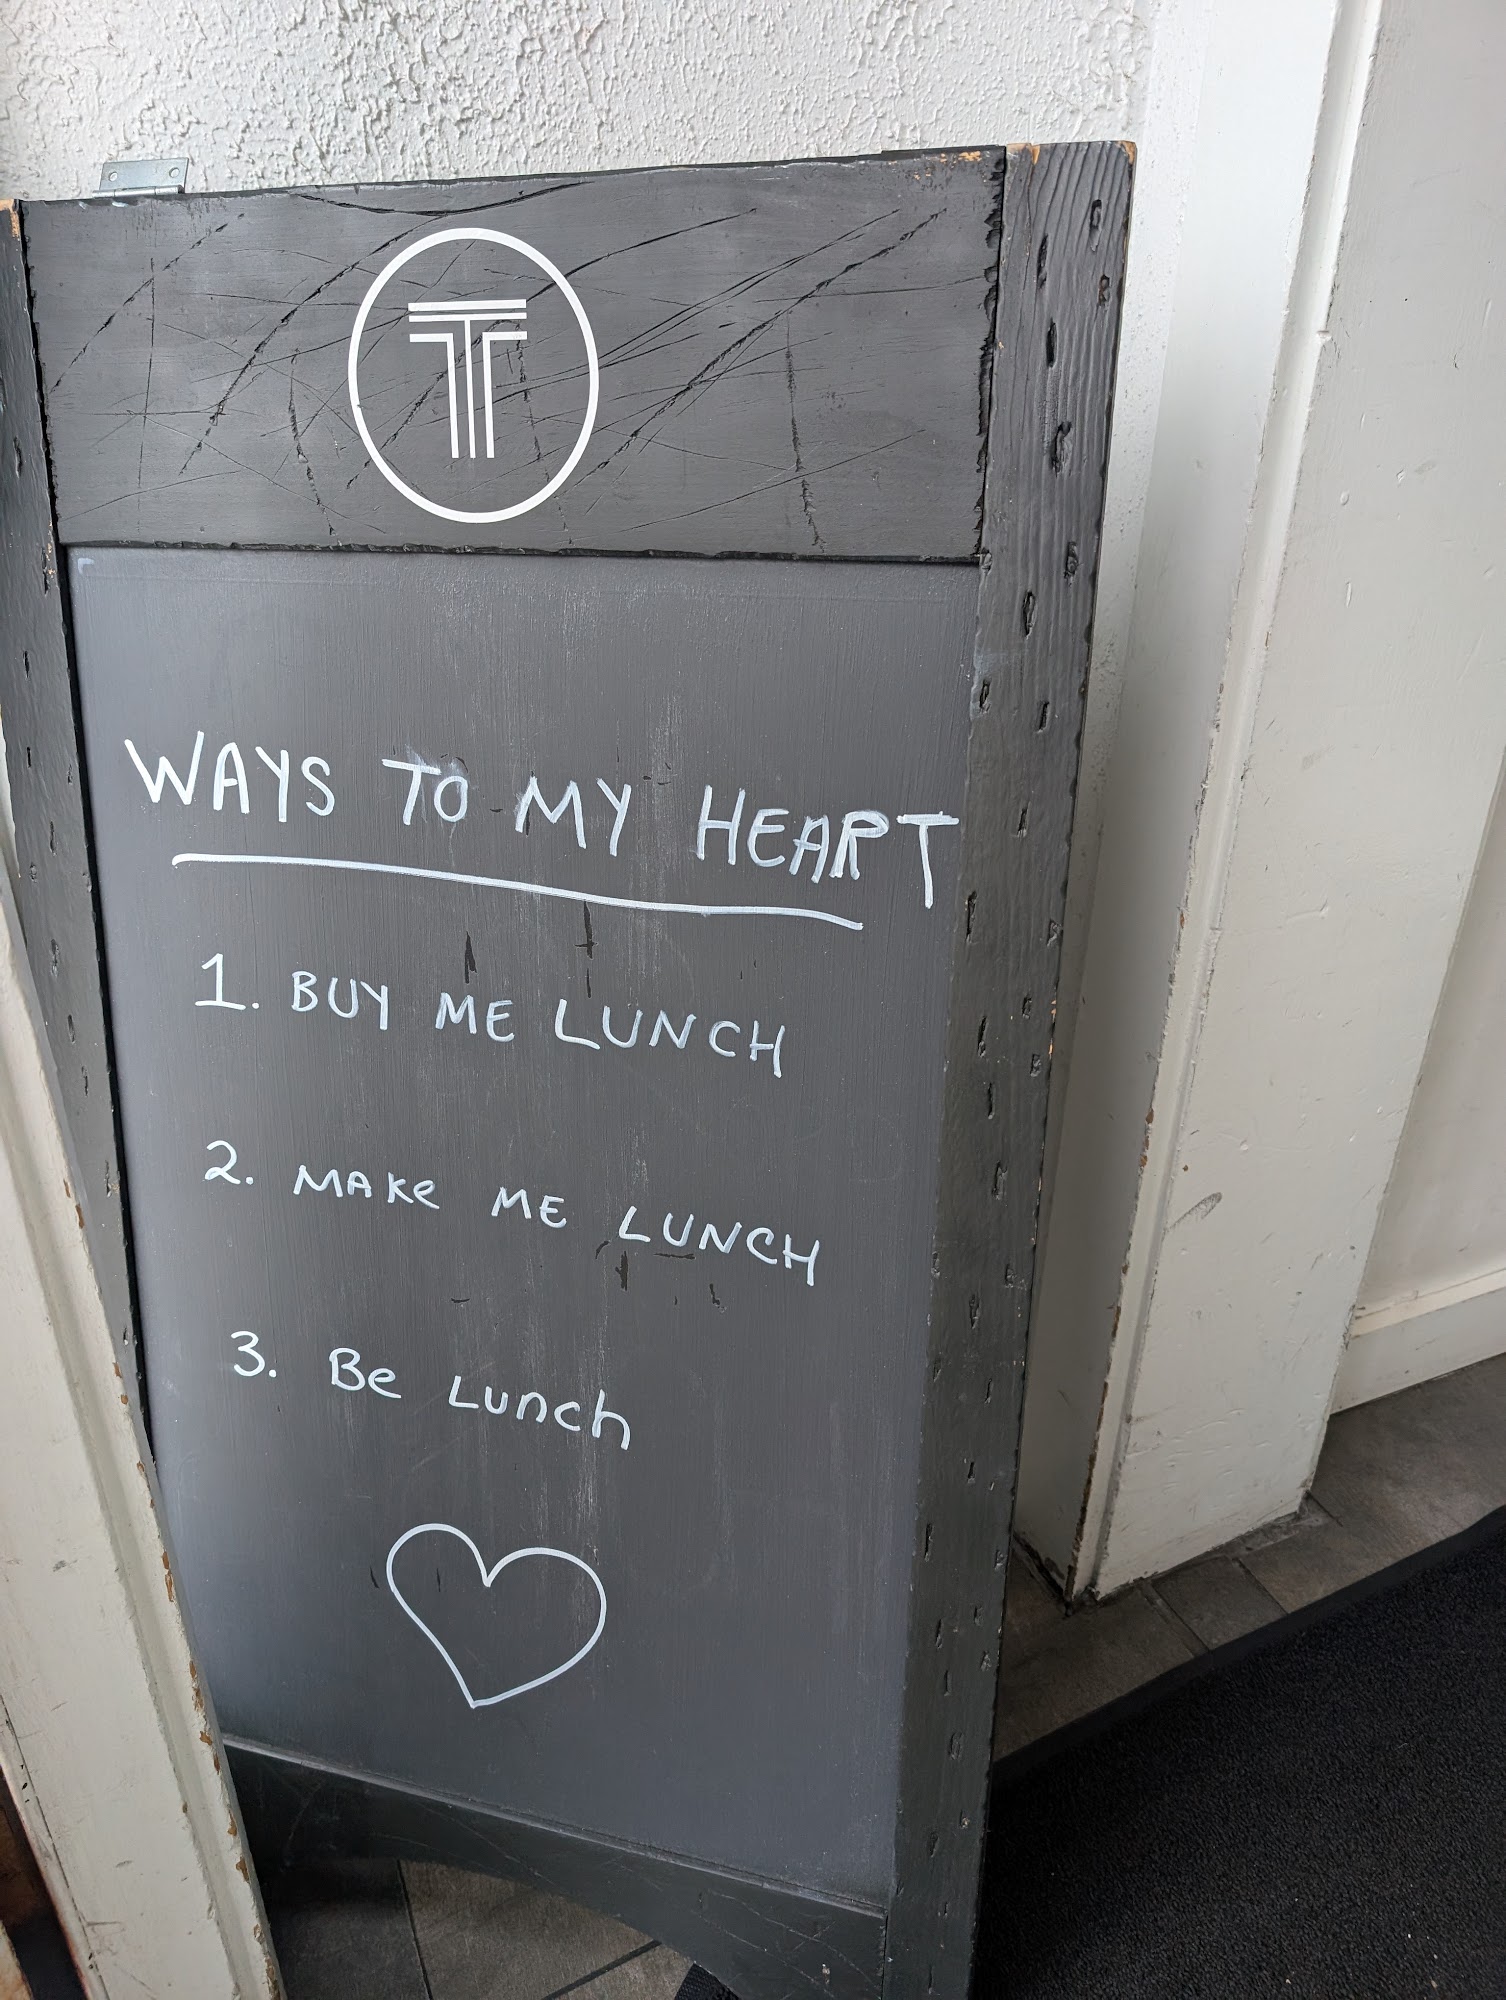 T
WAYS TO MY HEART
1. BUY ME LUNCH
2. MAKe ME LUNCH
3. Be Lunch